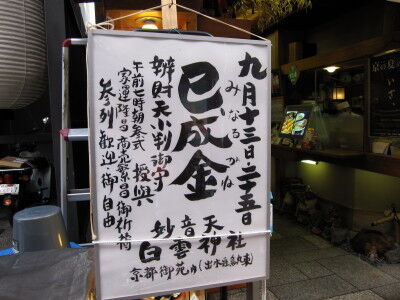 九月十三日・二十五日
みなるがね
巳成金
辨財天小判御守 授與
午前七時朝参式
家運隆昌 商売繁昌御祈祷
参列歓迎御自由
妙音天
白雲神社
京都御苑内(出水広島東)